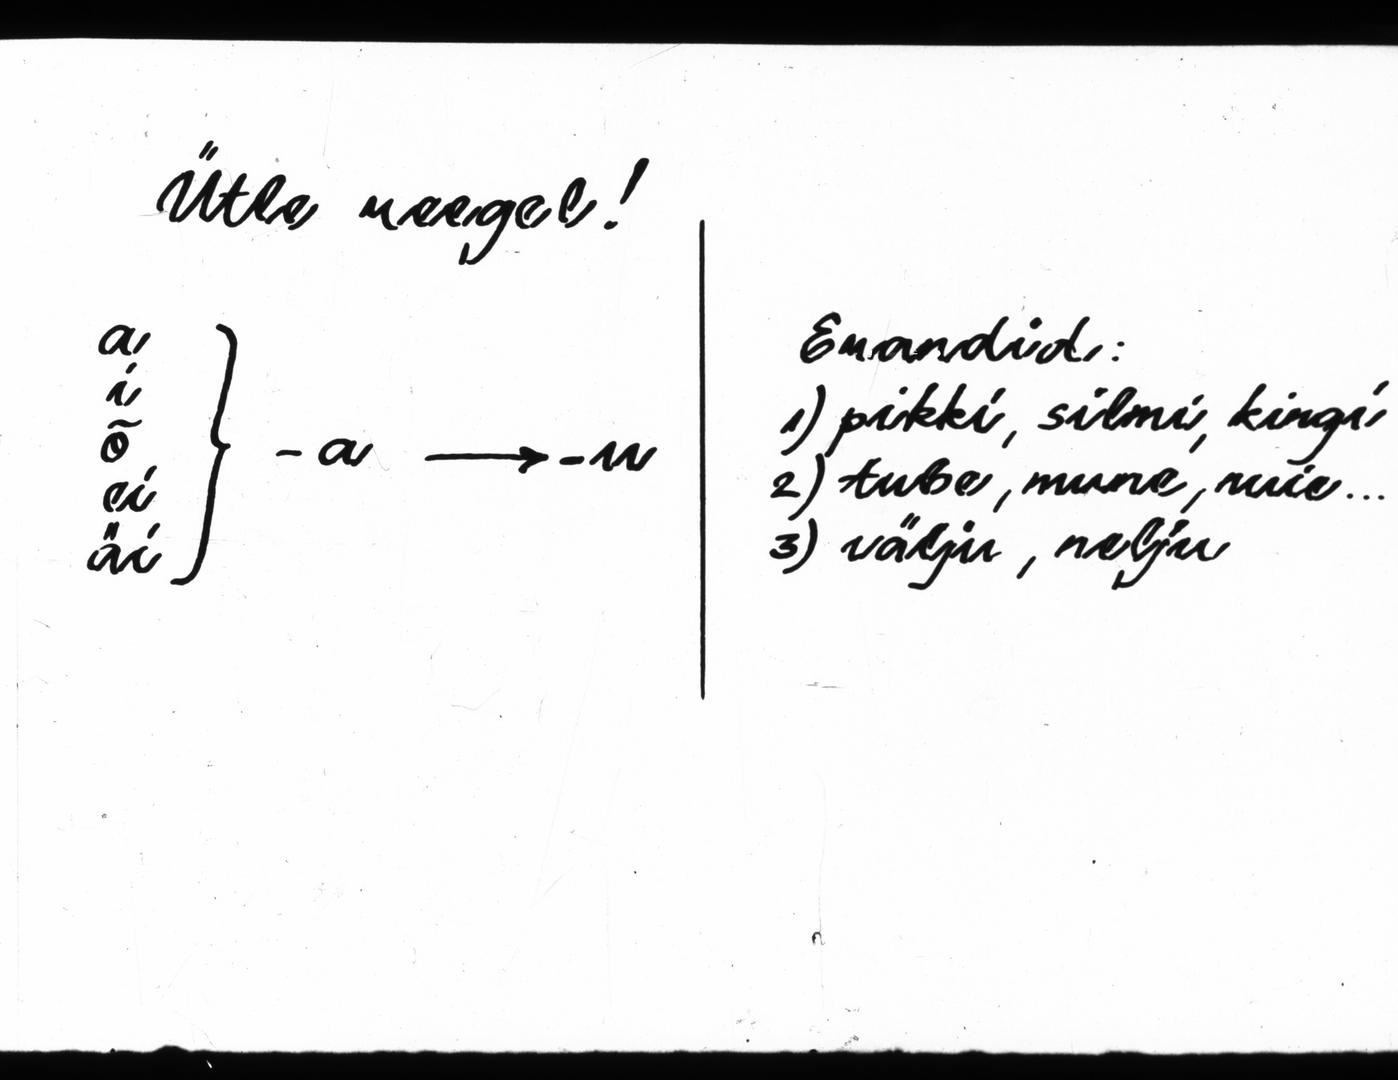 Ütle reegel!
a
i
õ
ei
äi
- a → -u
Erandid:
1) pikki, silmi, kingi
2) tube, mune, nuie...
3) välju, nelju